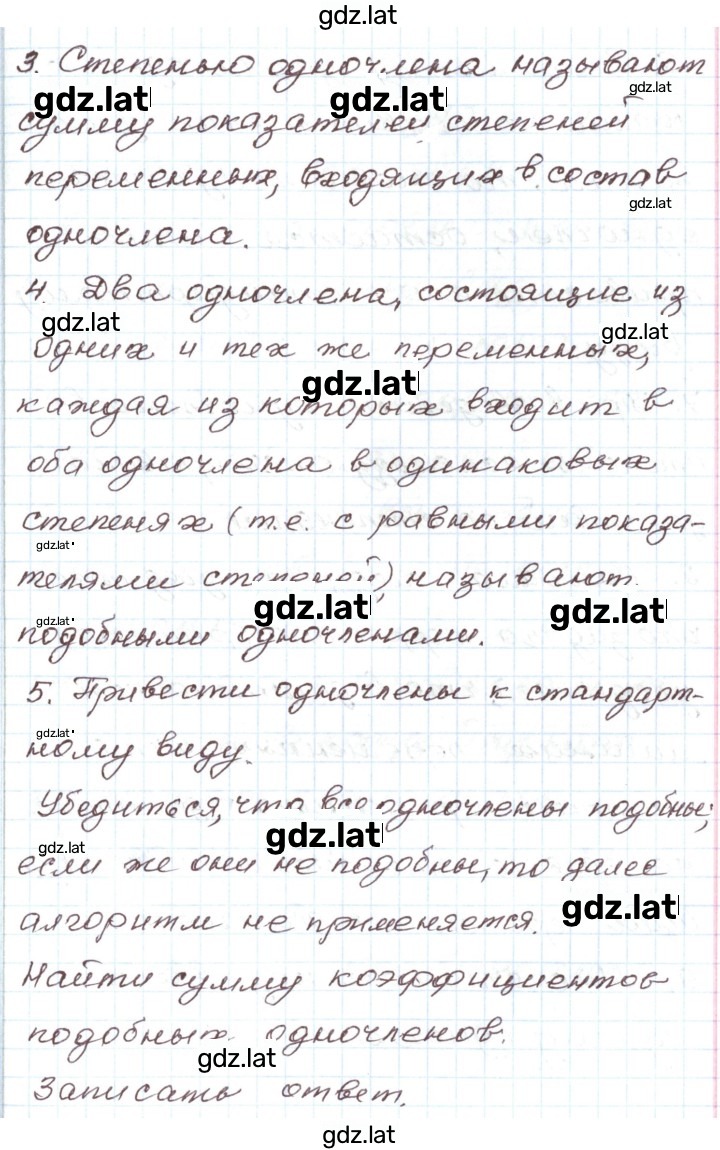 gdz.lat
3. Степенью одночлена называют
gdz.lat
gdz.lat gdz.lat
сумму показателей степеней
переменных, входящих в состав
gdz.lat
одночлена.
4. Два одночлена, состоящие из
gdz.lat gdz.lat
одних и тех же переменных,
gdz.lat
каждая из которых входит в
оба одночлена в одинаковых
степенях (т.е. с равными показа-
gdz.lat
телями степеней) называют
gdz.lat gdz.lat
gdz.lat
подобными одночленами.
5. Привести одночлены к стандарт-
gdz.lat
ному виду.
Убедиться, что все одночлены подобны;
gdz.lat
gdz.lat
если же они не подобны, то далее
gdz.lat
алгоритм не применяется.
Найти сумму коэффициентов
подобных одночленов.
gdz.lat
Записать ответ.
gdz.lat